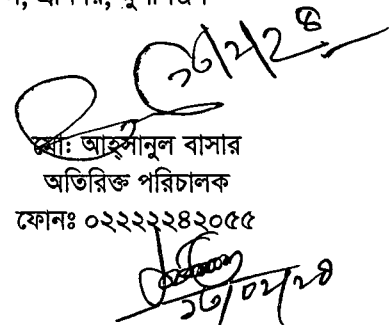 ১৩/২/২৪
মো: আহ্‌সানুল বাসার
অতিরিক্ত পরিচালক
ফোনঃ ০২২২২২৪২০৫৫
১৩/০২/২৪